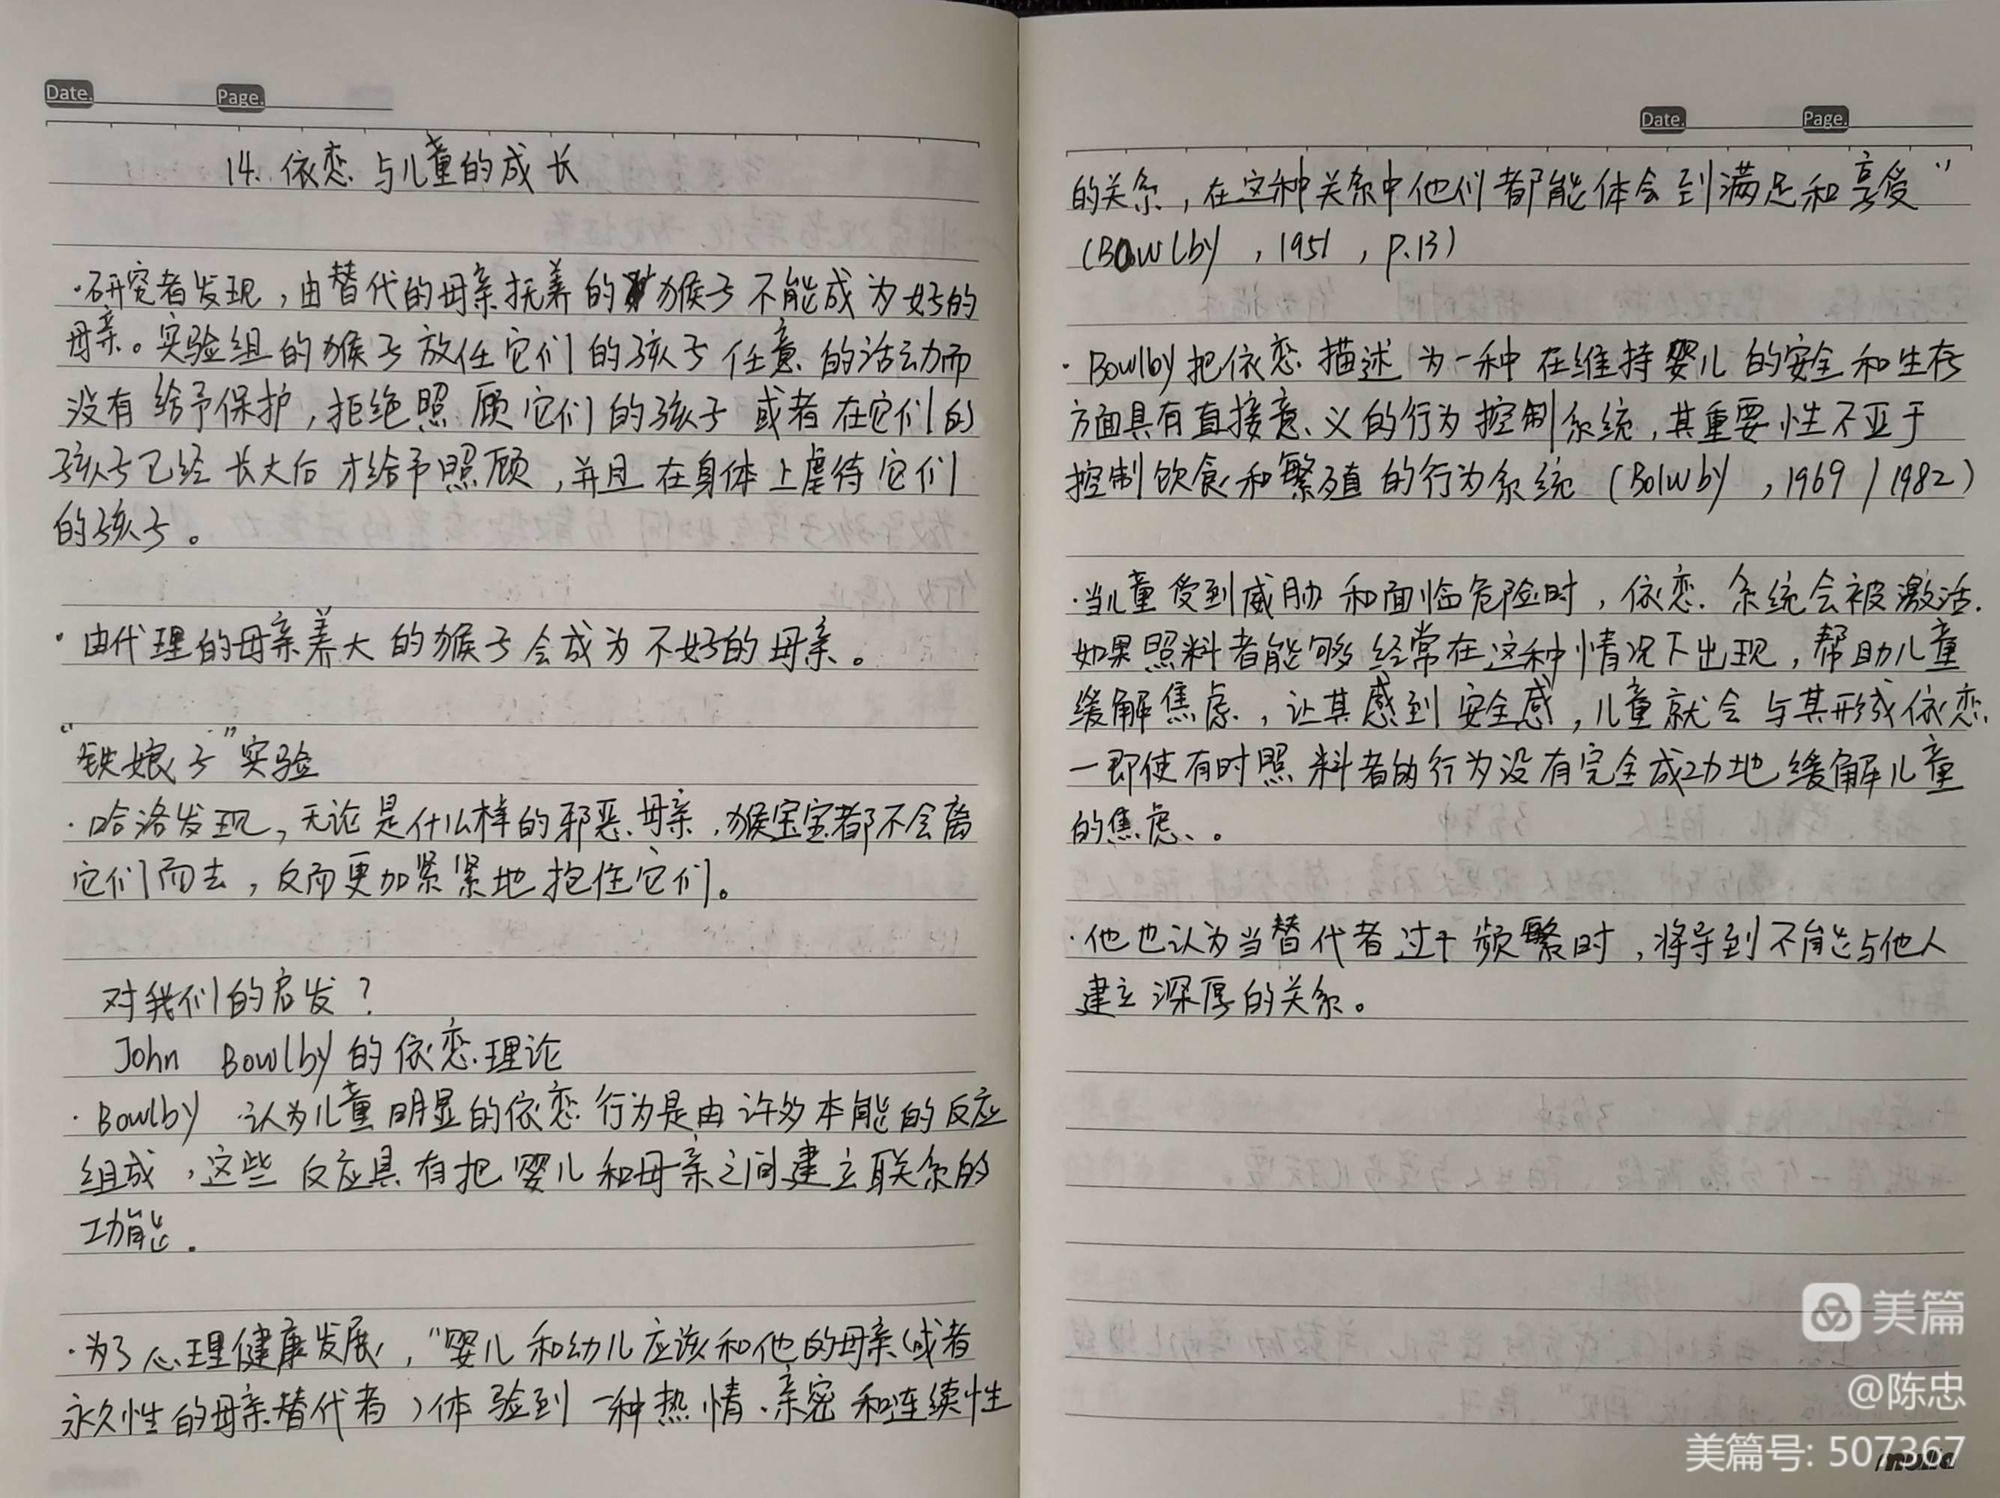 Date. Page.
14. 依恋与儿童的成长
·研究者发现，由替代的母亲抚养的猴子不能成为好的
母亲。实验组的猴子放任它们的孩子任意的活动而
没有给予保护，拒绝照顾它们的孩子或者在它们的
孩子已经长大后才给予照顾，并且在身体上虐待它们
的孩子。
·由代理的母亲养大的猴子会成为不好的母亲。
“铁娘子”实验
·哈洛发现，无论是什么样的邪恶母亲，猴宝宝都不会离
它们而去，反而更加紧紧地抱住它们。
对我们的启发？
John Bowlby的依恋理论
·Bowlby 认为儿童明显的依恋行为是由许多本能的反应
组成，这些反应具有把婴儿和母亲之间建立联系的
功能.
·为了心理健康发展，“婴儿和幼儿应该和他的母亲（或者
永久性的母亲替代者）体验到一种热情、亲密和连续性
Date. Page.
的关系，在这种关系中他们都能体会到满足和享受”
(Bowlby，1951，p.13)
·Bowlby把依恋描述为一种在维持婴儿的安全和生存
方面具有直接意义的行为控制系统，其重要性不亚于
控制饮食和繁殖的行为系统（Bolwby，1969/1982）
·当儿童受到威胁和面临危险时，依恋系统会被激活.
如果照料者能够经常在这种情况下出现，帮助儿童
缓解焦虑，让其感到安全感，儿童就会与其形成依恋
一即使有时照料者的行为没有完全成功地缓解儿童
的焦虑。
·他也认为当替代者过于频繁时，将导到不能与他人
建立深厚的关系。
美篇
@陈忠
美篇号: 507367